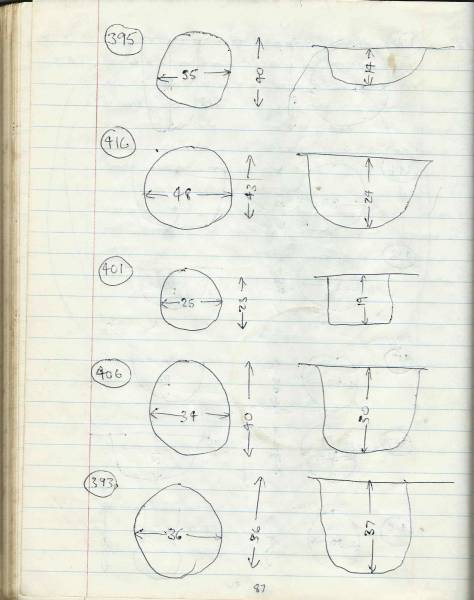 395 35 40 14
416 48 43 24
401 25 23 19
406 34 40 30
393 36 36 37
87